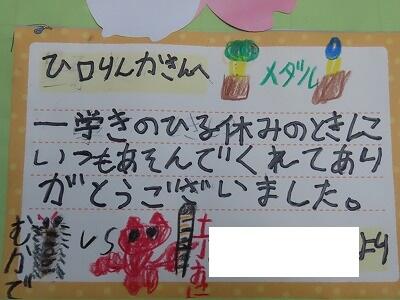 ひ口りんかさんへ
メダル
一学きのひる休みのときに
いつもあそんでくれてあり
がとうございました。
むかで
VS
より